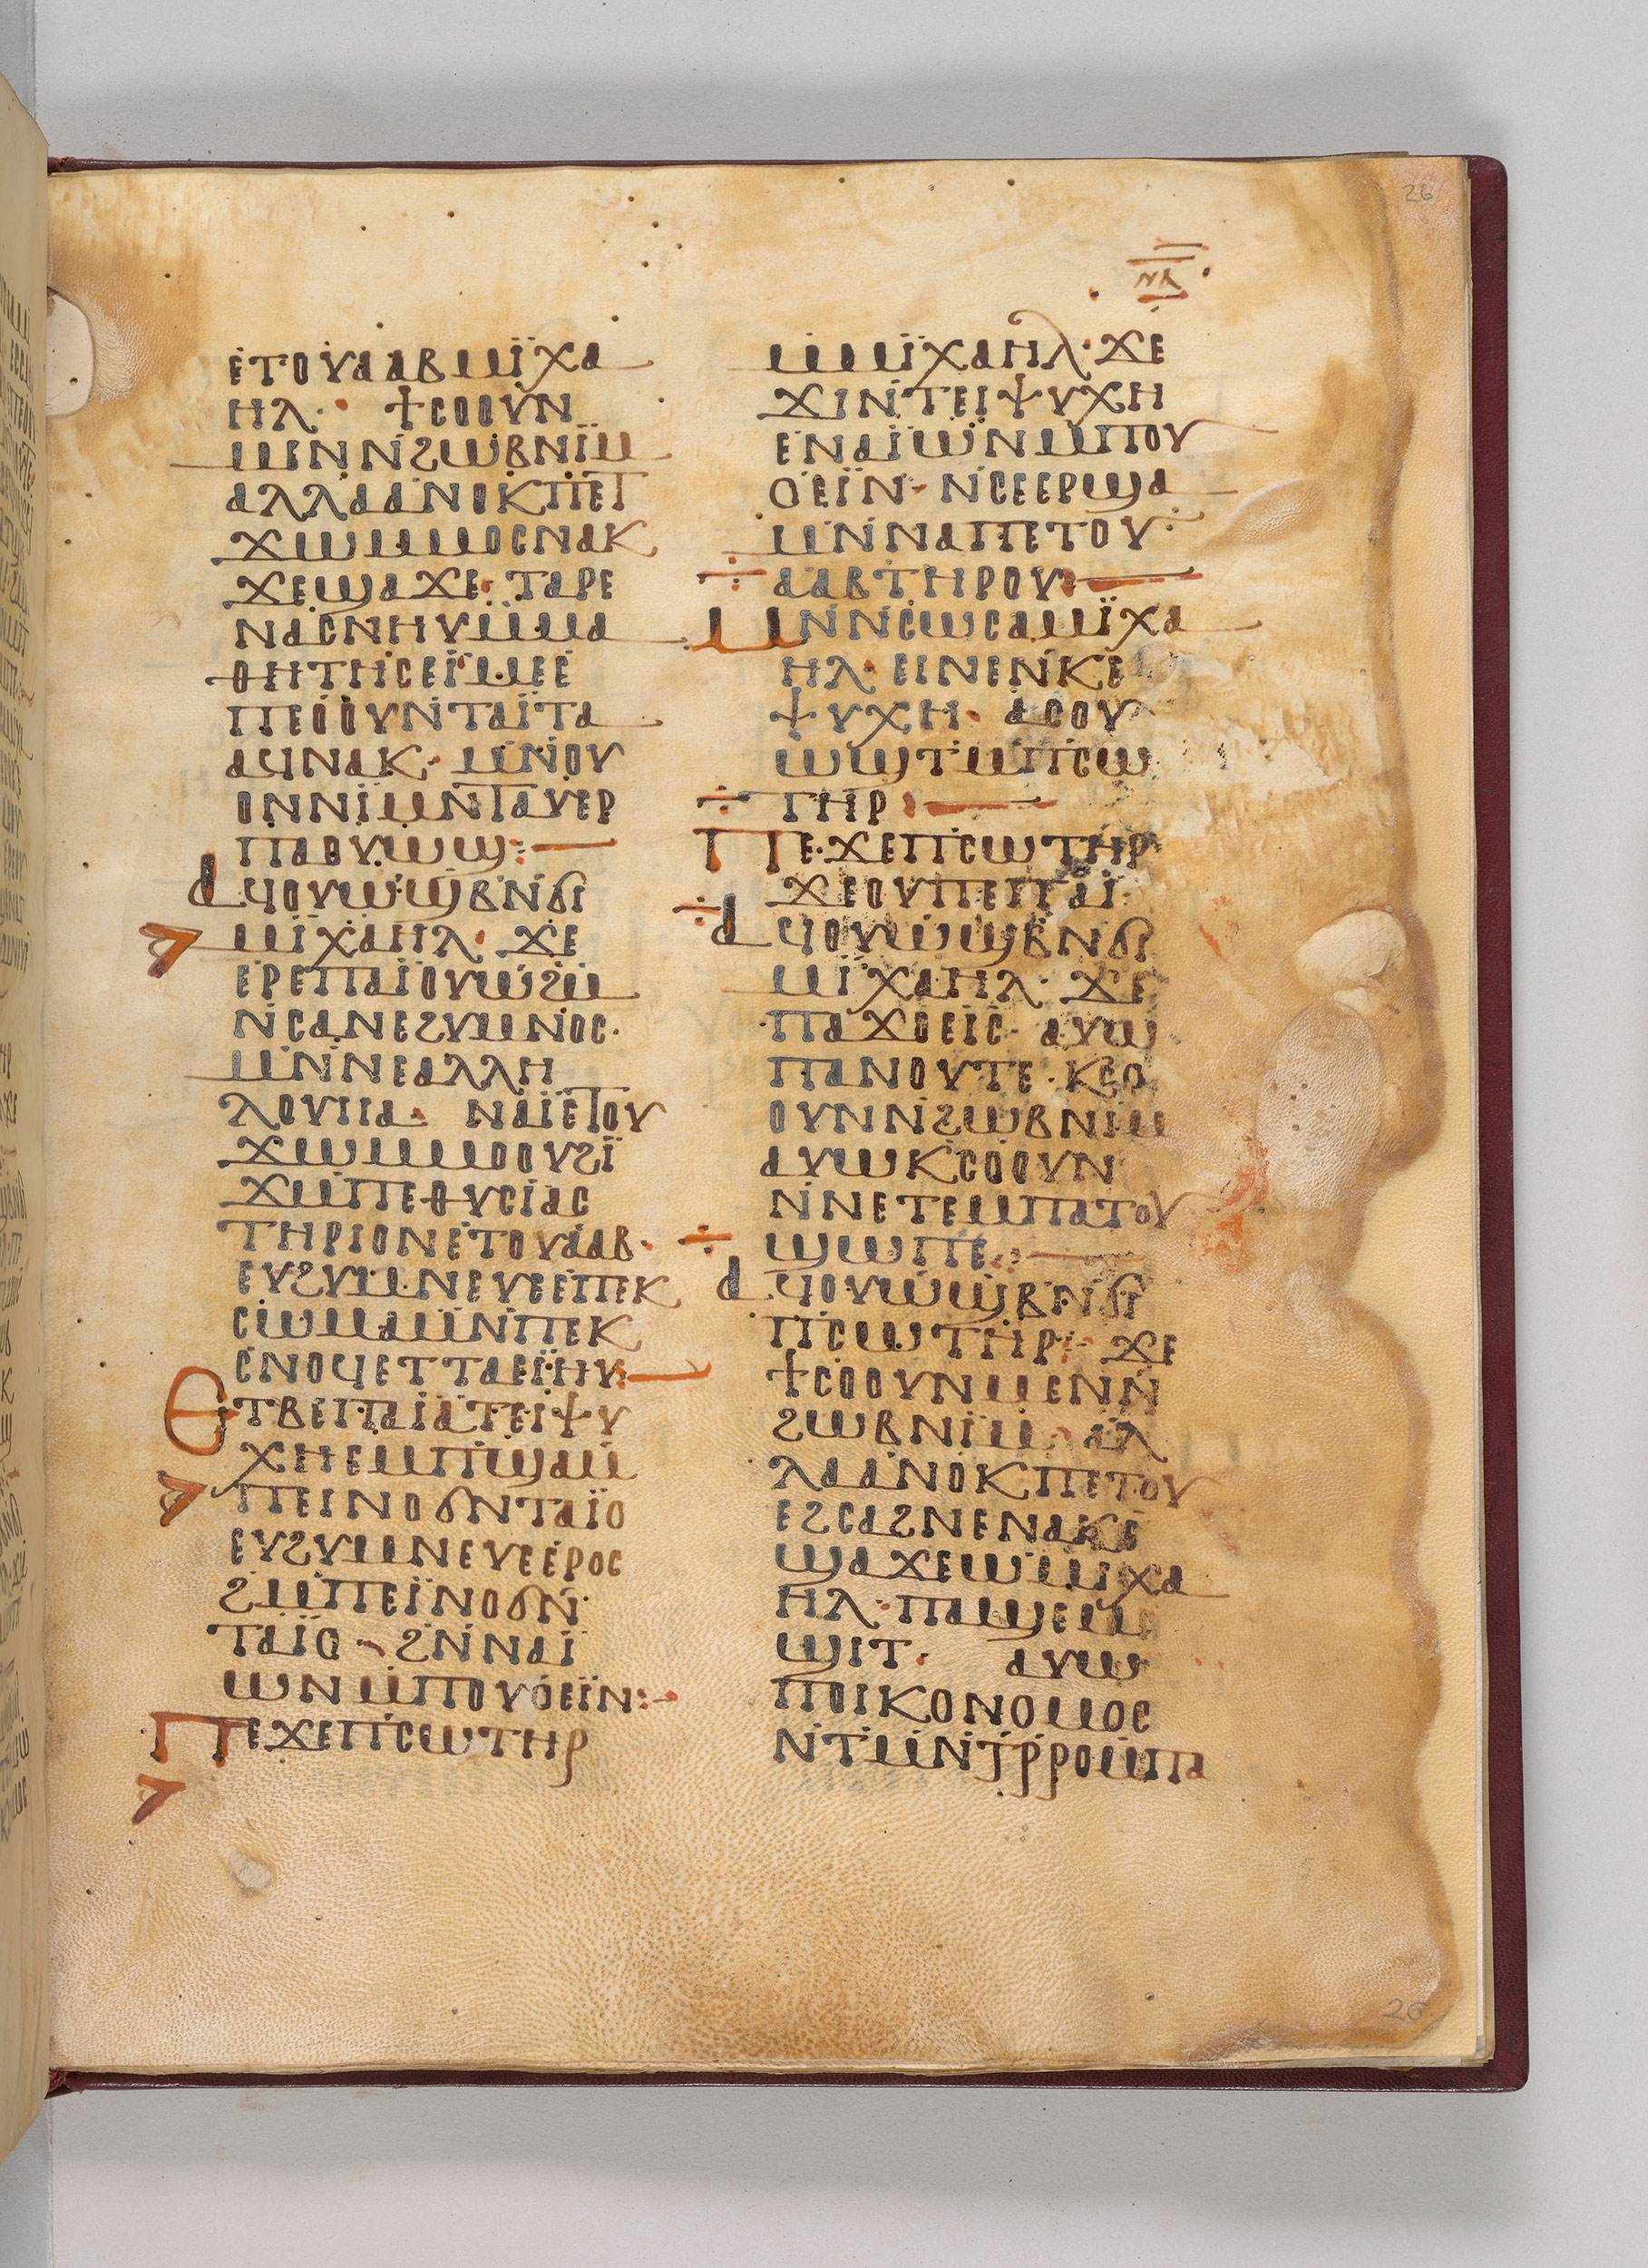 26
ⲛⲁ
ⲉⲧⲟⲩⲁⲁⲃ ⲙⲓ̈ⲭⲁ
ⲏⲗ· ϯⲥⲟⲟⲩⲛ
ⲙⲉⲛ ⲛ̇ϩⲱⲃ ⲛⲓ̈ⲙ
ⲁⲗⲗⲁ ⲁⲛⲟⲕ ⲡⲉⲧ
ϫⲱ ⲙ̇ⲙⲟⲥ ⲛⲁⲕ
ϫⲉ ϣⲁϫⲉ· ⲧⲁⲣⲉ
ⲛⲁⲥⲛⲏⲩ ⲙ̇ⲙⲁ
ⲑⲏⲧⲏⲥ ⲉⲓⲙⲉ ⲉ
ⲡⲉⲟ̇ⲟⲩ ⲛ̇ⲧⲁⲓ̈ⲧⲁ
ⲁϥ ⲛⲁⲕ· ⲙⲛ̇ ⲟⲩ
ⲟⲛ ⲛⲓⲙ ⲛⲧⲁⲩⲉⲣ
ⲡⲁⲟⲩⲱϣ:—
ⲁϥⲟⲩⲱϣⲃ ⲛ̇ϭⲓ
ⲙⲓ̈ⲭⲁⲏⲗ· ϫⲉ
ⲉⲣⲉⲡⲁⲓ̈ ⲟⲩⲱϩⲙ̇
ⲛ̇ⲥⲁ ⲛⲉϩⲩⲙⲛⲟⲥ·
ⲙⲛ̇ ⲛⲉⲁⲗⲗⲏ
ⲗⲟⲩⲓⲁ· ⲛⲁⲓ̈ ⲉⲧⲟⲩ
ϫⲱ ⲙ̇ⲙⲟⲟⲩ ϩⲓ̈
ϫⲙ̇ ⲡⲉⲑⲩⲥⲓⲁⲥ
ⲧⲏⲣⲓⲟⲛ ⲉⲧⲟⲩⲁⲁⲃ·
ⲉⲩϩⲩⲙⲛⲉⲩⲉ ⲉⲡⲉⲕ
ⲥⲱⲙⲁ ⲙⲛ̇ ⲡⲉⲕ
ⲥⲛⲟϥ ⲉⲧⲧⲁⲉⲓ̈ⲏⲩ:—
ⲉⲧⲃⲉ ⲡⲁⲓ̈ ⲁ ⲧⲉⲓⲯⲩ
ⲭⲏ ⲉⲙⲡϣⲁ ⲙ̇
ⲡⲉⲓⲛⲟϭ ⲛⲧⲁⲓ̈ⲟ
ⲉⲩϩⲩⲙⲛⲉⲩⲉ ⲉⲣⲟⲥ
ϩⲙ̇ ⲡⲉⲓ̈ⲛⲟϭ ⲛ̇·
ⲧⲁⲓ̈ⲟ· ϩⲛ̇ ⲛⲁⲓ
ⲱⲛ ⲙ̇ⲡⲟⲩⲟⲉⲓ̈ⲛ:-
ⲡⲉϫⲉ ⲡⲥⲱⲧⲏⲣ
ⲙ̇ⲙⲓ̈ⲭⲁⲏⲗ· ϫⲉ
ϫⲓ ⲛ̇ⲧⲉⲓⲯⲩⲭⲏ
ⲉⲛⲁⲓ̈ⲱ̈ⲛ ⲙⲡⲟⲩ
ⲟⲉⲓ̈ⲛ· ⲛ̇ⲥⲉⲉⲣϣⲁ
ⲙⲛ̇ ⲛⲁⲡⲉⲧⲟⲩ·
ⲁⲁⲃ ⲧⲏⲣⲟⲩ:—
ⲙⲛ̇ⲛ̇ⲥⲱⲥ ⲁⲙⲓ̈ⲭⲁ
ⲏⲗ· ⲉⲓⲛⲉ ⲛ̇ⲕⲉ
ⲯⲩⲭⲏ· ⲁⲥⲟⲩ
ⲱϣⲧ ⲙ̇ⲡⲥⲱ
ⲧⲏⲣ:—
ⲡⲉϫⲉ ⲡⲥⲱⲧⲏⲣ
ϫⲉ ⲟⲩ ⲡⲉ ⲡⲁⲓ
ⲁϥⲟⲩⲱϣⲃ ⲛϭⲓ
ⲙⲓ̈ⲭⲁⲏⲗ· ϫⲉ
ⲡⲁϫⲟⲉⲓⲥ· ⲁⲩⲱ
ⲡⲁⲛⲟⲩⲧⲉ· ⲕⲥⲟ
ⲟⲩⲛ ⲛ̇ϩⲱⲃ ⲛⲓⲙ
ⲁⲩⲱ ⲕⲥⲟⲟⲩⲛ
ⲛ̇ⲛⲉⲧⲉⲙⲡⲁⲧⲟⲩ
ϣⲱⲡⲉ:—
ⲁϥⲟⲩⲱϣⲃ ⲛ̇ϭⲓ
ⲡⲥⲱⲧⲏⲣ· ϫⲉ
ϯⲥⲟⲟⲩⲛ ⲙⲉⲛ ⲛ̇
ϩⲱⲃ ⲛⲓⲙ· ⲁⲗ
ⲗⲁ ⲁⲛⲟⲕ ⲡⲉⲧⲟⲩ
ⲉϩⲥⲁϩⲛⲉ ⲛⲁⲕ ⲉ
ϣⲁϫⲉ ⲱ ⲙⲓⲭⲁ
ⲏⲗ· ⲡⲁϣⲉⲙ
ϣⲓⲧ· ⲁⲩⲱ
ⲡⲟⲓⲕⲟⲛⲟⲙⲟⲥ
ⲛ̇ⲧⲙⲛ̇ⲧⲣ̇ⲣⲟ ⲙ̇ⲡⲁ
26